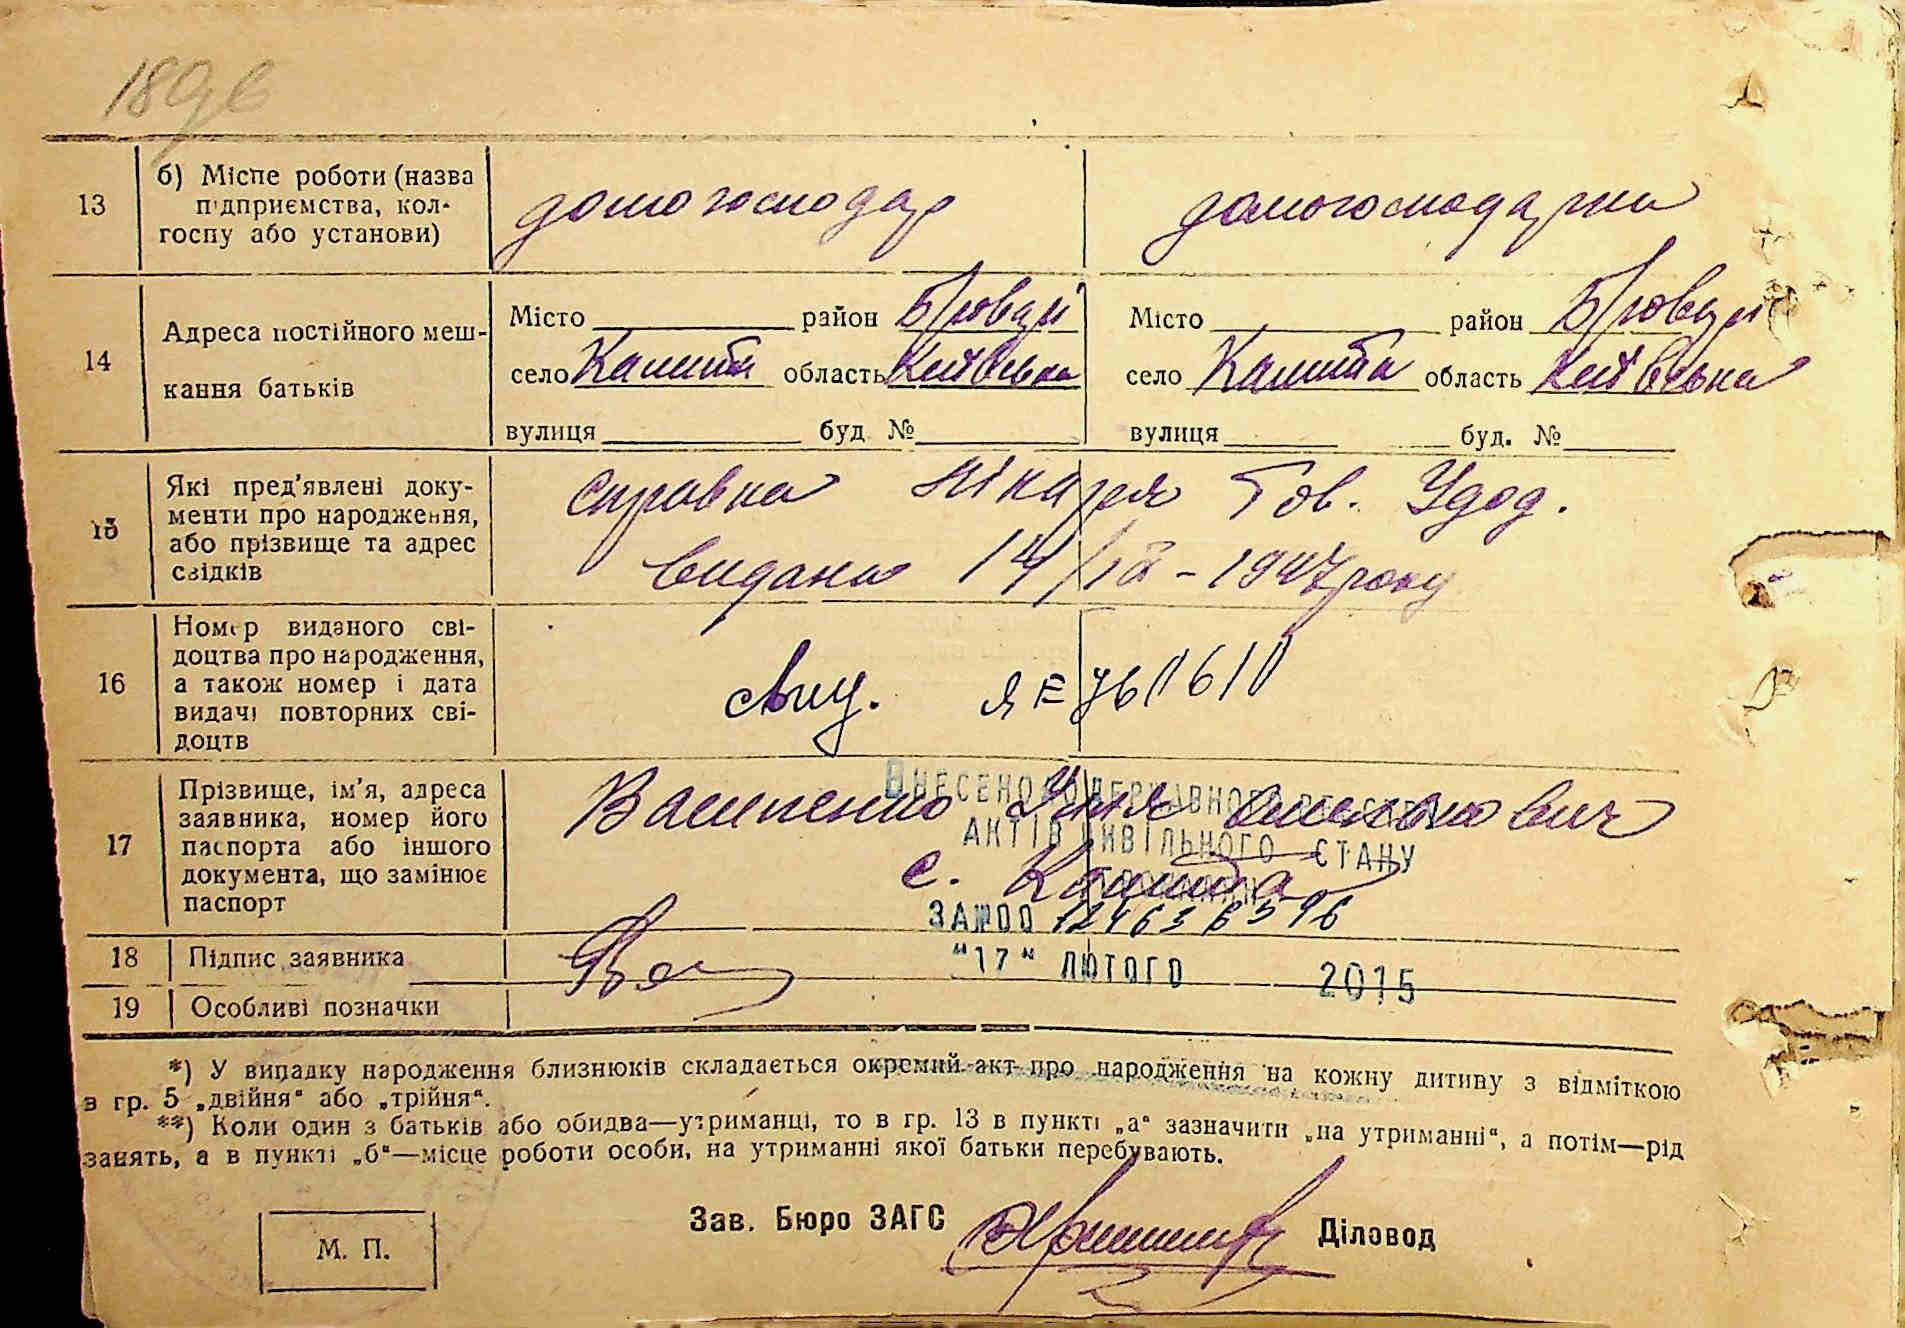 13
б) Місце роботи (назва підприємства, колгоспу або установи)
домогосподар
домогосподарка
14
Адреса постійного мешкання батьків
Місто район Бровари
село Калита область Київська
вулиця буд №
Місто район Бровари
село Калита область Київська
вулиця буд. №
15
Які пред'явлені документи про народження, або прізвище та адрес свідків
справка лікаря Тов. Удод.
видана 14/IX-1947 року
16
Номер виданого свідоцтва про народження, а також номер і дата видачі повторних свідоцтв
ЯЕ
17
Прізвище, ім'я, адреса заявника, номер його паспорта або іншого документа, що замінює паспорт
Василенко
с. Калита
Внесено до Державного реєстру
актів цивільного стану
громадян
за №00
"17" лютого 2015
18
Підпис заявника
19
Особливі позначки
*) У випадку народження близнюків складається окремий акт про народження на кожну дитину з відміткою
в гр. 5 „двійня" або „трійня".
**) Коли один з батьків або обидва—утриманці, то в гр. 13 в пункті „а" зазначити „на утриманні", а потім—рід
занять, а в пункті „б"—місце роботи особи, на утриманні якої батьки перебувають.
М. П.
Зав. Бюро ЗАГС
Діловод